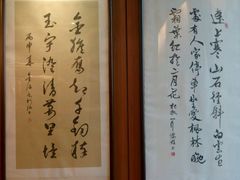 遠上寒山石徑斜白雲生
處有人家停車坐愛楓林晚
霜葉紅於二月花
金猴奮起千鈞棒
玉宇澄清萬里埃
丙申夏